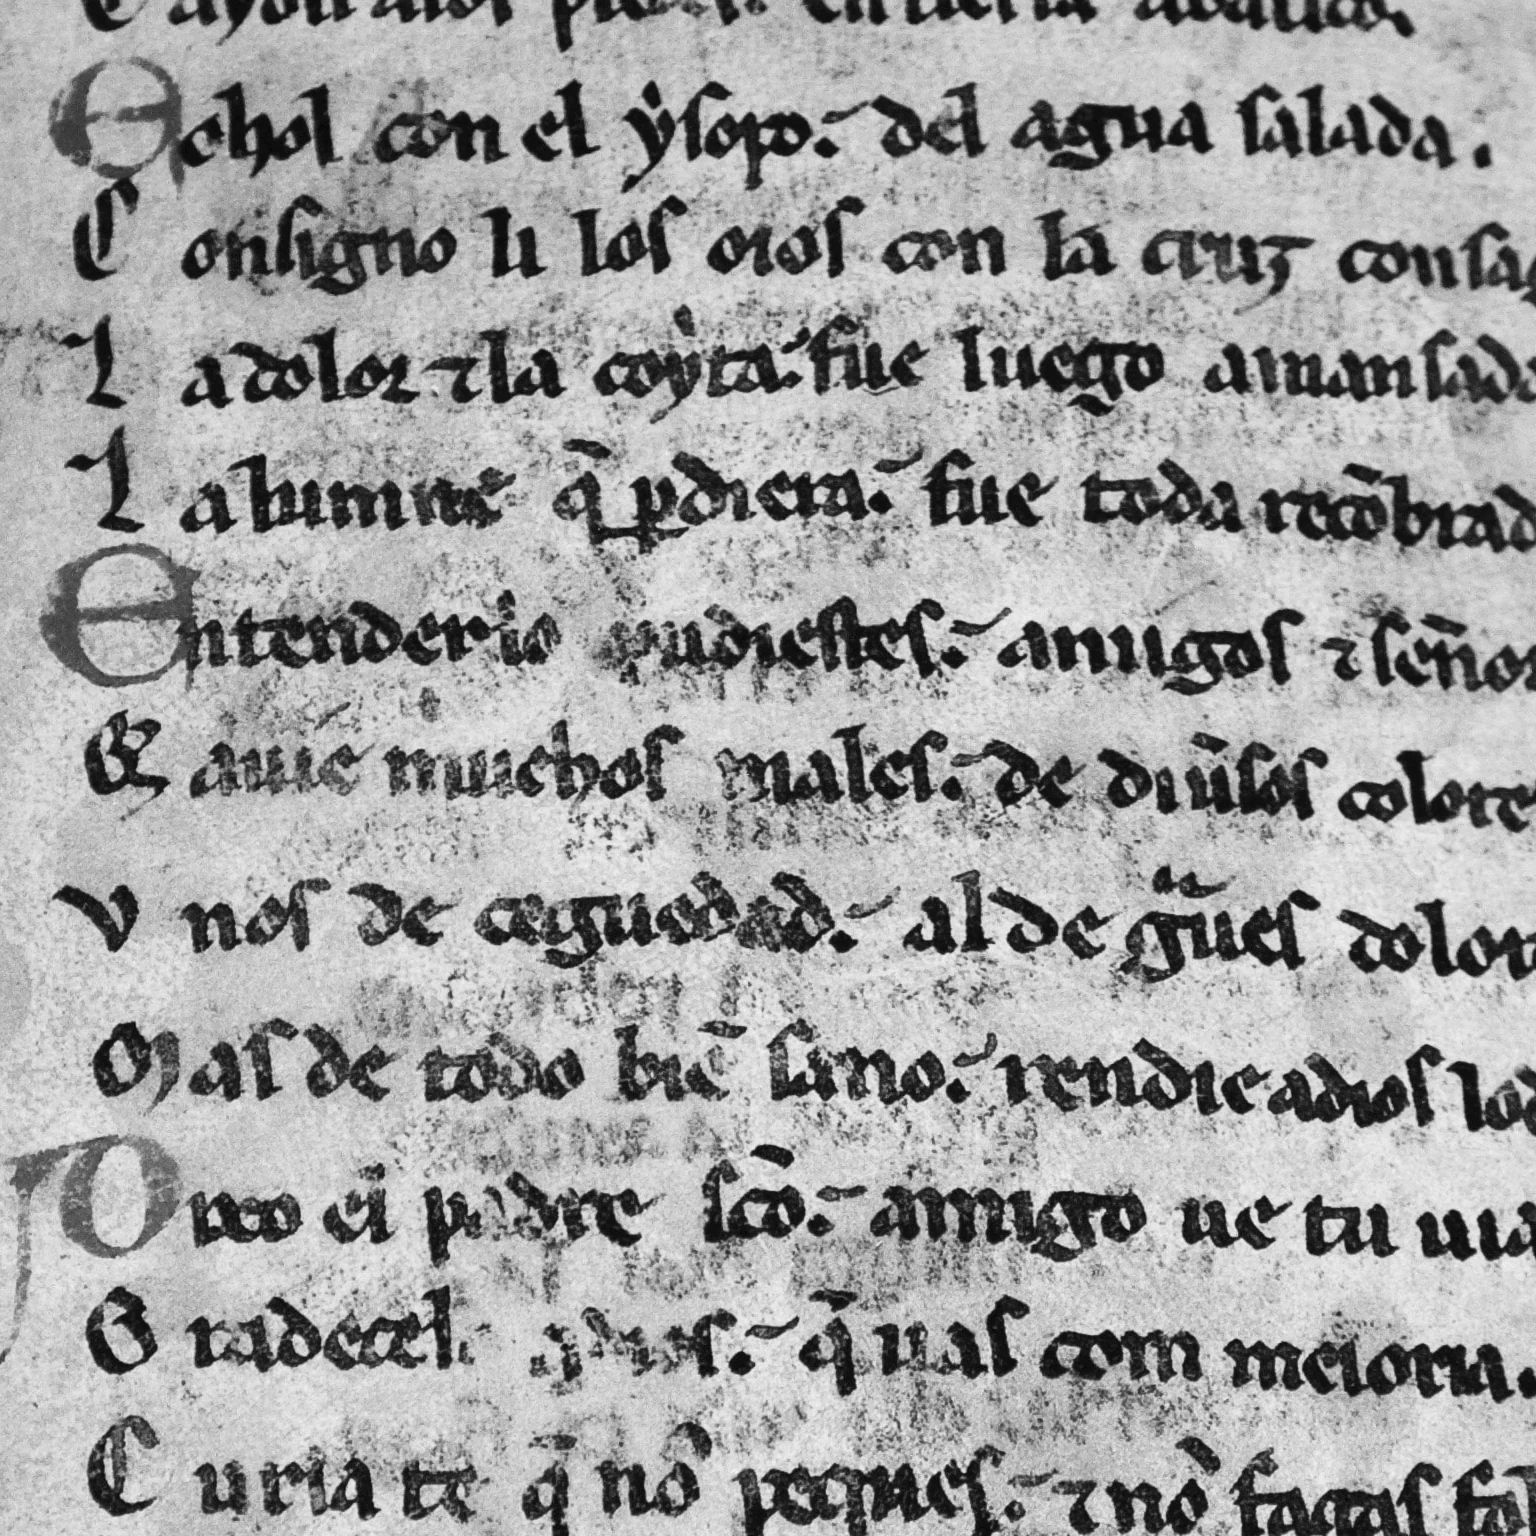 Cayoli alos piedes: en tierra abatido.
Echol con el ẏsopo: del agua salada.
Consigno li los oios con la cruz consag
La dolor ⁊ la coẏta: fue luego amansada
La lumne q̄ ꝑdiera: fue toda recōbrad
Entender lo pudiestes: amigos ⁊ señor
Q̄ auie muchos males: de diũsos colore
Unos de ceguedad: al de gͣues dolor
Mas de todo biē sano: rendie a dios lo
Dixo el padre sc̄o: amigo ue tu uia
Gradecel a dios: q̄ uas com meioria.
Curia te q̄ no peques: ⁊ no fagas fo